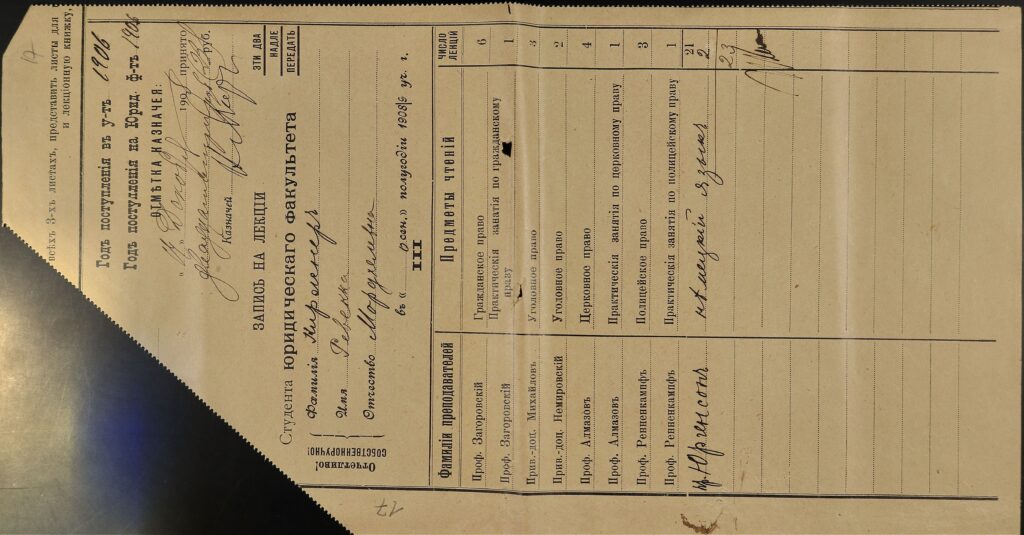 всѣхъ 3-хъ листахъ, представить листы для
и лекціонную книжку,
Годъ поступленія въ у-тъ 1906
Годъ поступленія на Юрид. ф-тъ 1906
ОТМѢТКА КАЗНАЧЕЯ:
190 принято
руб.
Казначей
ЭТИ ДВА
НАДЛЕ
ПЕРЕДАТЬ
ЗАПИСЬ НА ЛЕКЦІИ
Студента юридическаго факультета
Отчетливо!
СОБСТВЕННОРУЧНО!
Фамилія
Имя Ревекка
Отчество Мордковна
въ „ осен.” полугодіи 1908/9 уч. г.
III
Фамиліи преподавателей Предметы чтеній ЧИСЛО ЛЕКЦІЙ
Проф. Загоровскій Гражданское право 6
Проф. Загоровскій Практическія занатія по гражданскому праву 1
Прив.-доц. Михайловъ Уголовное право 3
Прив.-доц. Немировскій Уголовное право 2
Проф. Алмазовъ Церковное право 4
Проф. Алмазовъ Практическія занятія по церковному праву 1
Проф. Ренненкампфъ Полицейское право 3
Проф. Ренненкампфъ Практическія занятія по полицейскому праву 1
21
пр. Юргенсонъ нѣмецкій языкъ 2
23
17